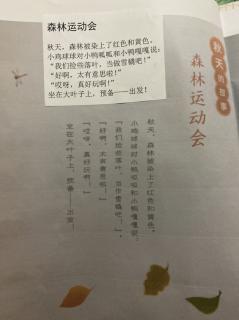 森林运动会
秋天，森林被染上了红色和黄色。
小鸡球球对小鸭呱呱和小鸭嘎嘎说：
“我们捡些落叶，当做雪橇吧！”
“好啊，太有意思啦！”
“哎呀，真好玩啊！”
坐在大叶子上，预备——出发！
秋天的故事
森林运动会
秋天，森林被染上了红色和黄色。
小鸡球球对小鸭呱呱和小鸭嘎嘎说：
“我们捡些落叶，当作雪橇吧！”
“好啊，太有意思啦！”
“哎呀，真好玩啊！”
坐在大叶子上，预备——出发！